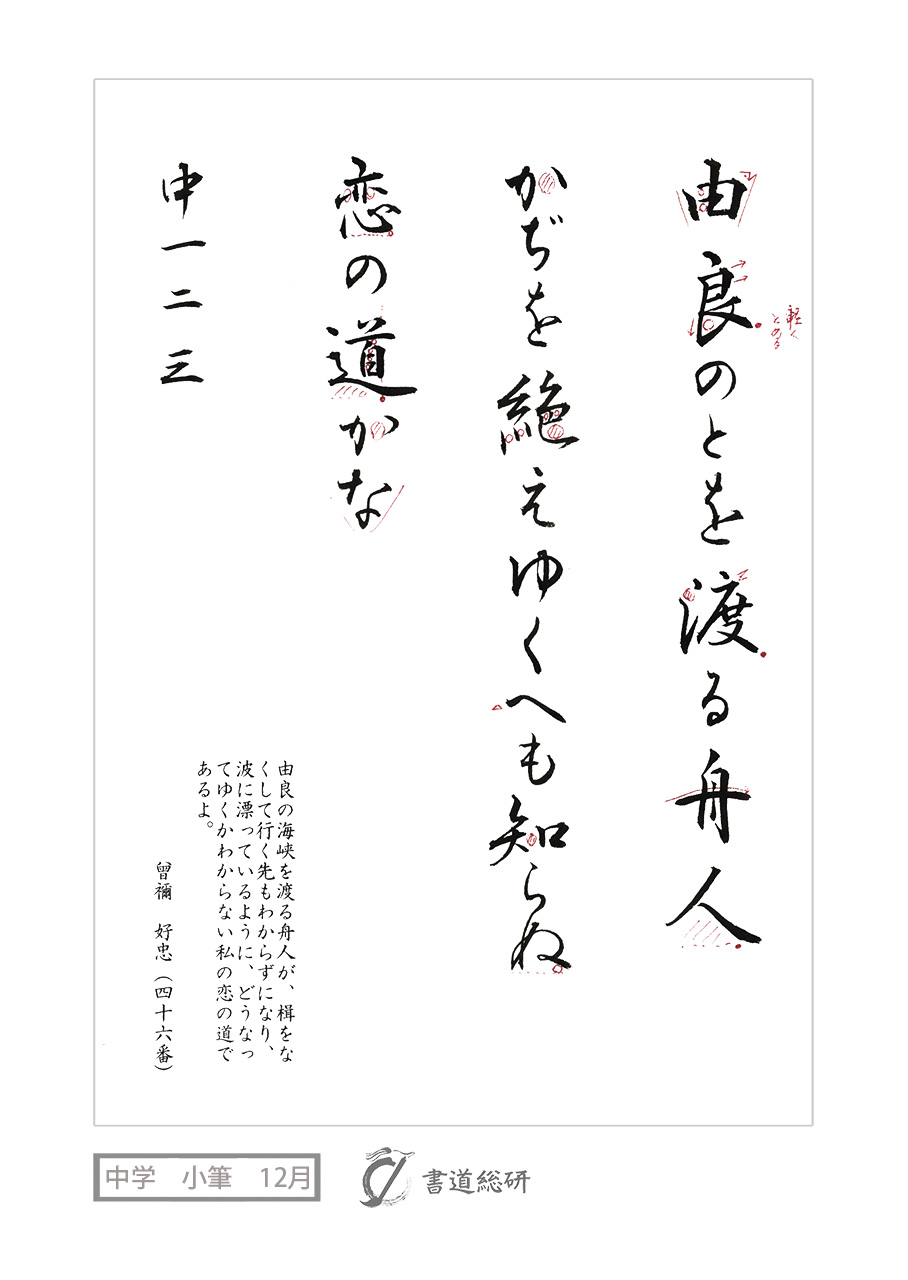 由良のとを渡る舟人
かぢを絶えゆくへも知らぬ
恋の道かな
中一二三
軽く
とめる
由良の海峡を渡る舟人が、楫をな
くして行く先もわからずになり、
波に漂っているように、どうなっ
てゆくかわからない私の恋の道で
あるよ。
曾禰 好忠(四十六番)
中学 小筆 12月
書道総研